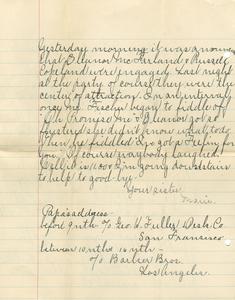 Yesterday morning it was announced
that Eleanor McFarland & Russell
Copeland were engaged. Last night
at the party of course they were the
center of attraction. In an interval
once Mr. Fischer began to fiddle off
"Oh Promise Me" & Eleanor got so
flustered she didn't know what to do.
Then he fiddled "I've got a Feeling for
You". Of course everybody laughed.
Well it is 11:00 & I'm going downstairs
to help to good-by.
Your sister
Marie.
Papa's address -
before 9th - % Geo. H. Fuller Desk Co.
San Francisco
between 10th & 16th -
% Barker Bros.
Los Angeles.